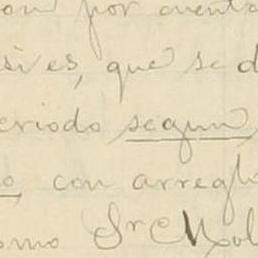 on por cuenta
si es, que se d
eriodo segun
o, con arreglo
omo Sr Mol